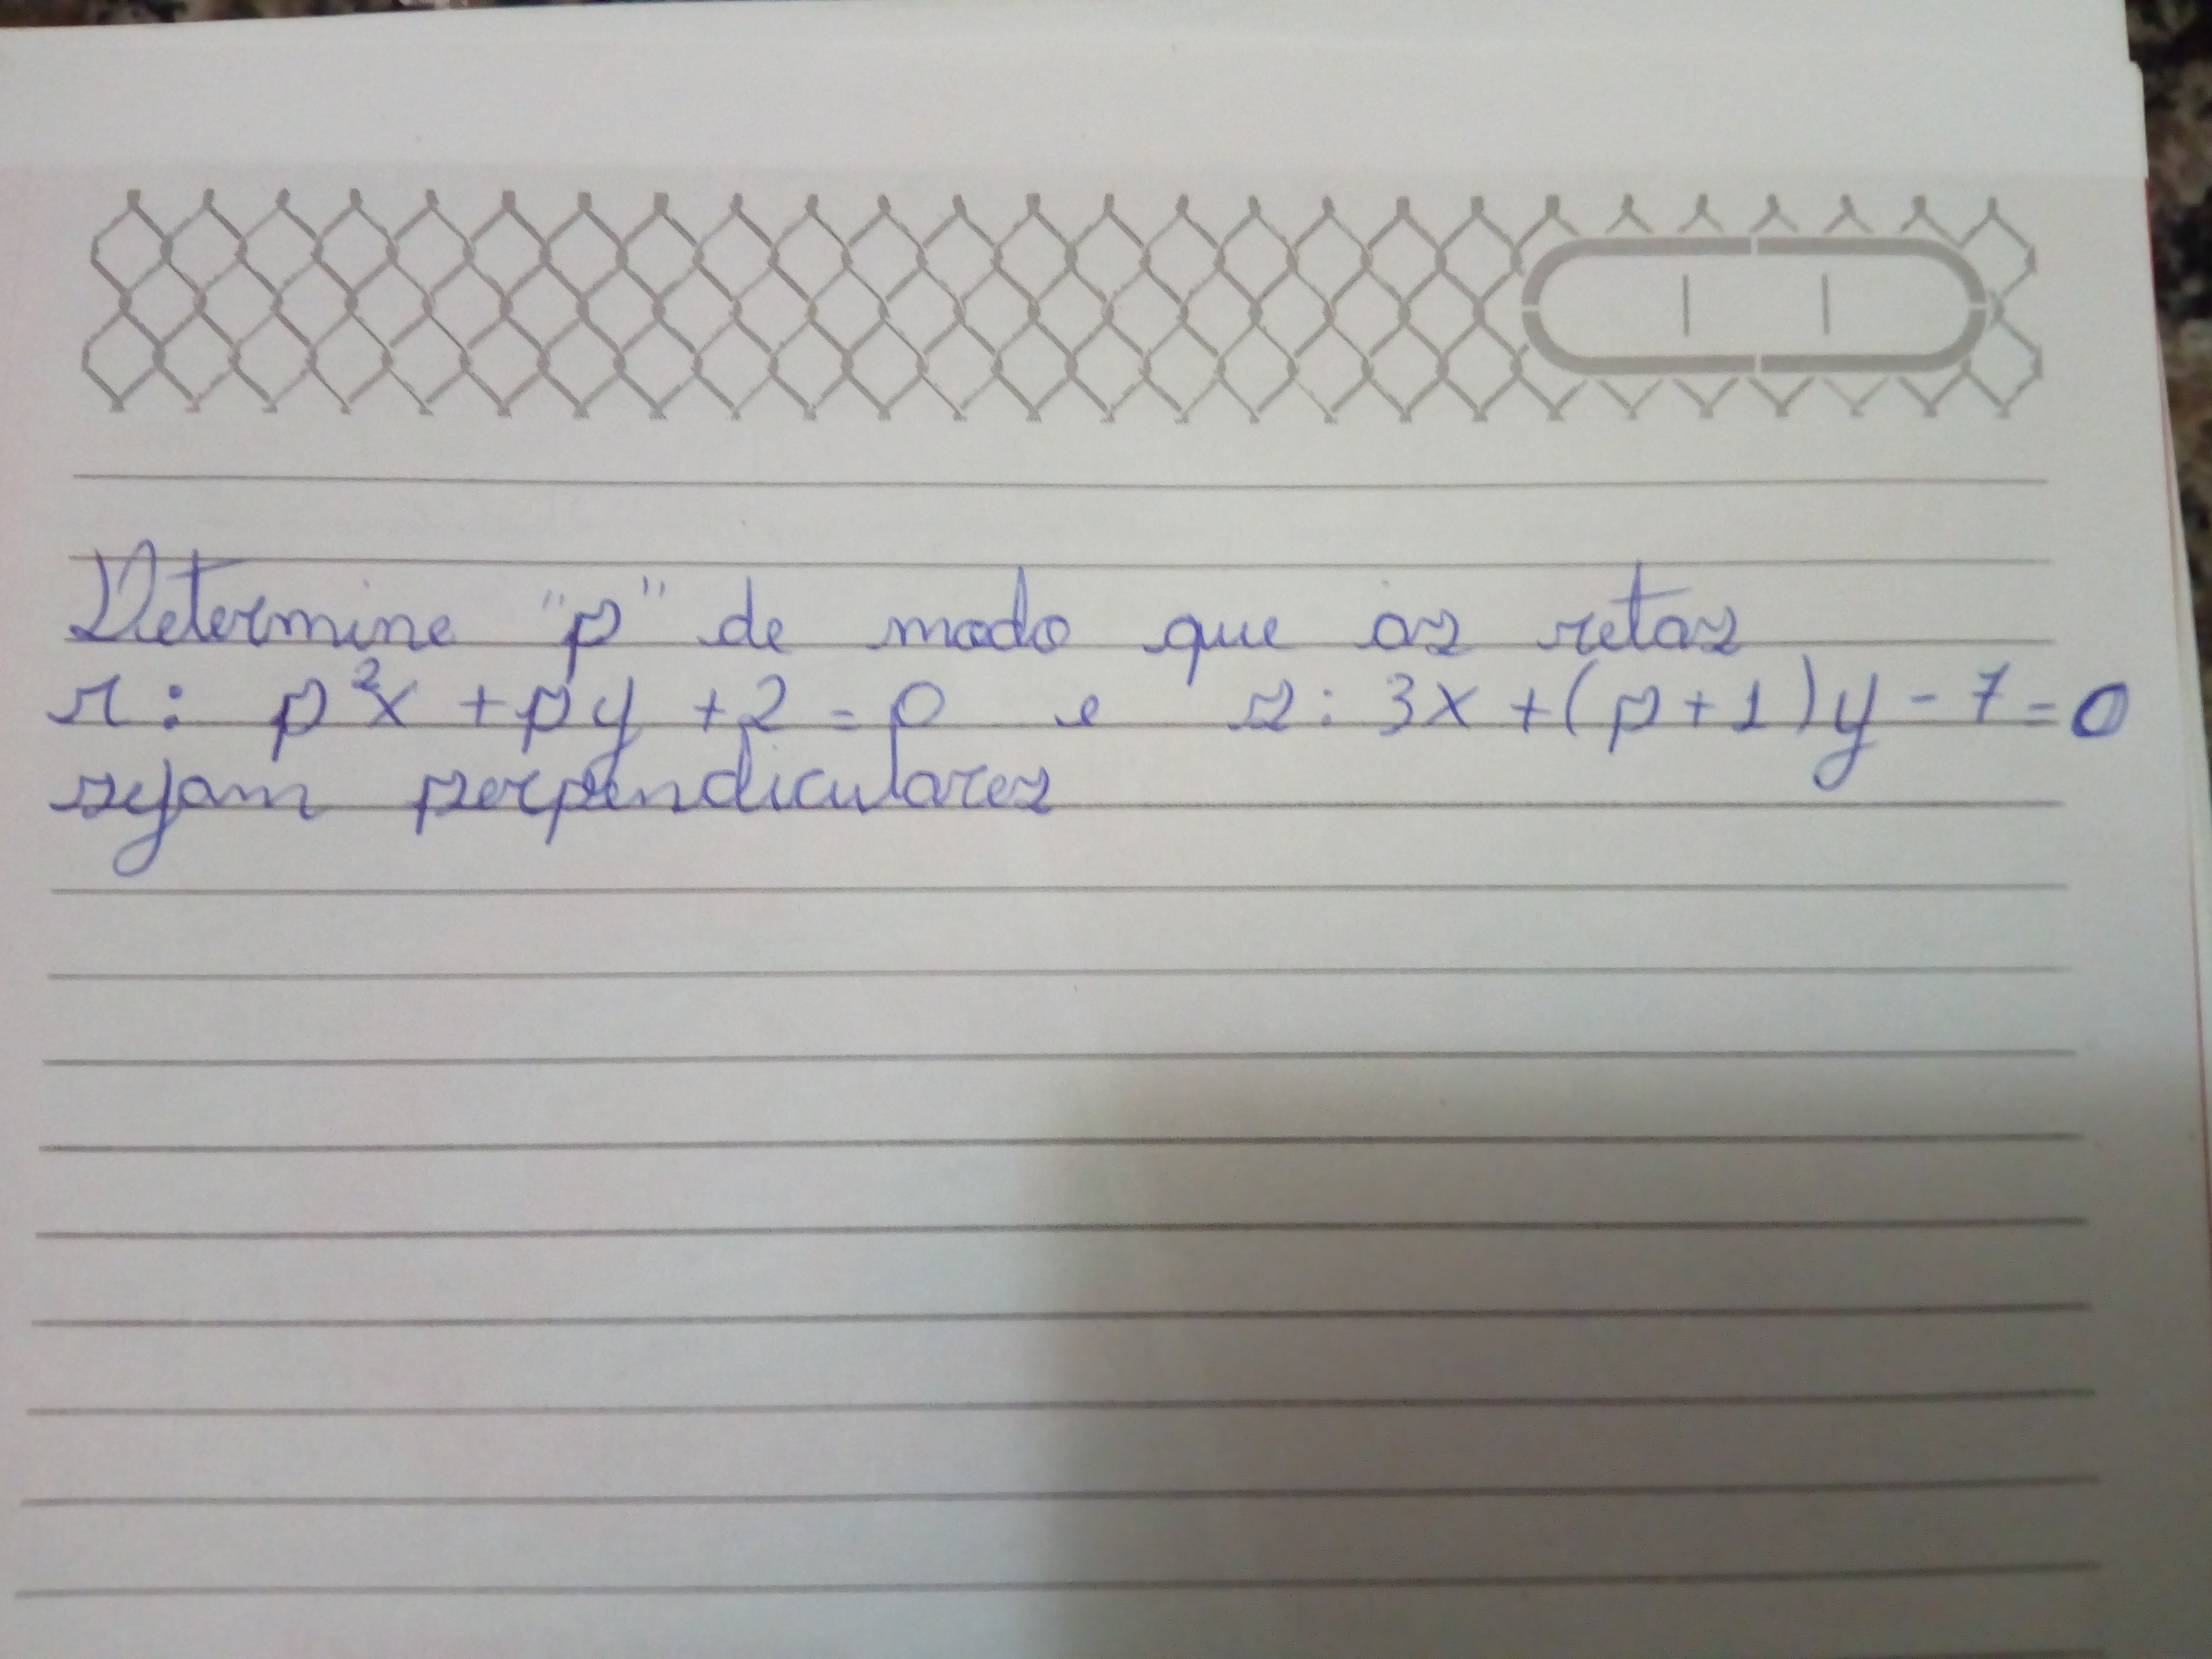 Determine "p" de modo que as retas
r: p²x + py + 2 = 0 e s: 3x + (p + 1)y - 7 = 0
sejam perpendiculares